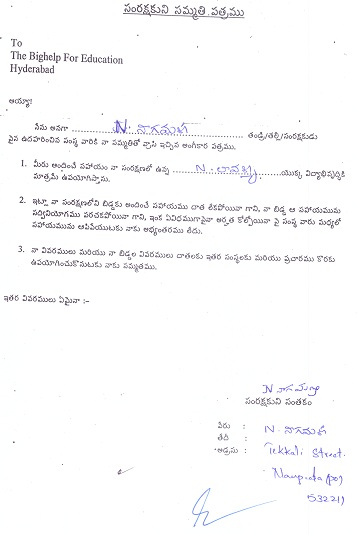 సంరక్షకుని సమ్మతి పత్రము
To
The Bighelp For Education
Hyderabad
అయ్యా!
నేను అనగా N. నాగమణి తండ్రి/తల్లి/సంరక్షకుడు
పైన ఉదహరించిన సంస్థ వారికి నా సమ్మతితో వ్రాసి ఇచ్చిన అంగీకార పత్రము.
1. మీరు అందించే సహాయం నా సంరక్షణలో ఉన్న N. లావణ్య యొక్క విద్యాభివృద్ధికి
మాత్రమే ఉపయోగిస్తాను.
2. ఇట్లా నా సంరక్షణలోని బిడ్డకు అందించే సహాయము దాత లేకపోయినా గాని, నా బిడ్డ ఆ సహాయమును
సద్వినియోగము పరచకపోయినా గాని, ఇంక ఏవిధముగానైనా అర్హత కోల్పోయినా పై సంస్థ వారు మధ్యలో
సహాయమును ఆపివేయుటకు నాకు అభ్యంతరము లేదు.
3. నా వివరములు మరియు నా బిడ్డల వివరములు దాతలకు ఇతర సంస్థలకు మరియు ప్రచారము కొరకు
ఉపయోగించుకొనుటకు నాకు సమ్మతము.
ఇతర వివరములు ఏమైనా :-
N నాగమణి
సంరక్షకుని సంతకం
పేరు : N. నాగమణి
తేదీ :
అడ్రసు : Tekkali Street.
Naupada (po)
532219